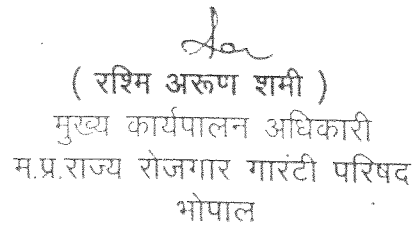 ( रश्मि अरूण शमी )
मुख्य कार्यपालन अधिकारी
म.प्र.राज्य रोजगार गारंटी परिषद
भोपाल